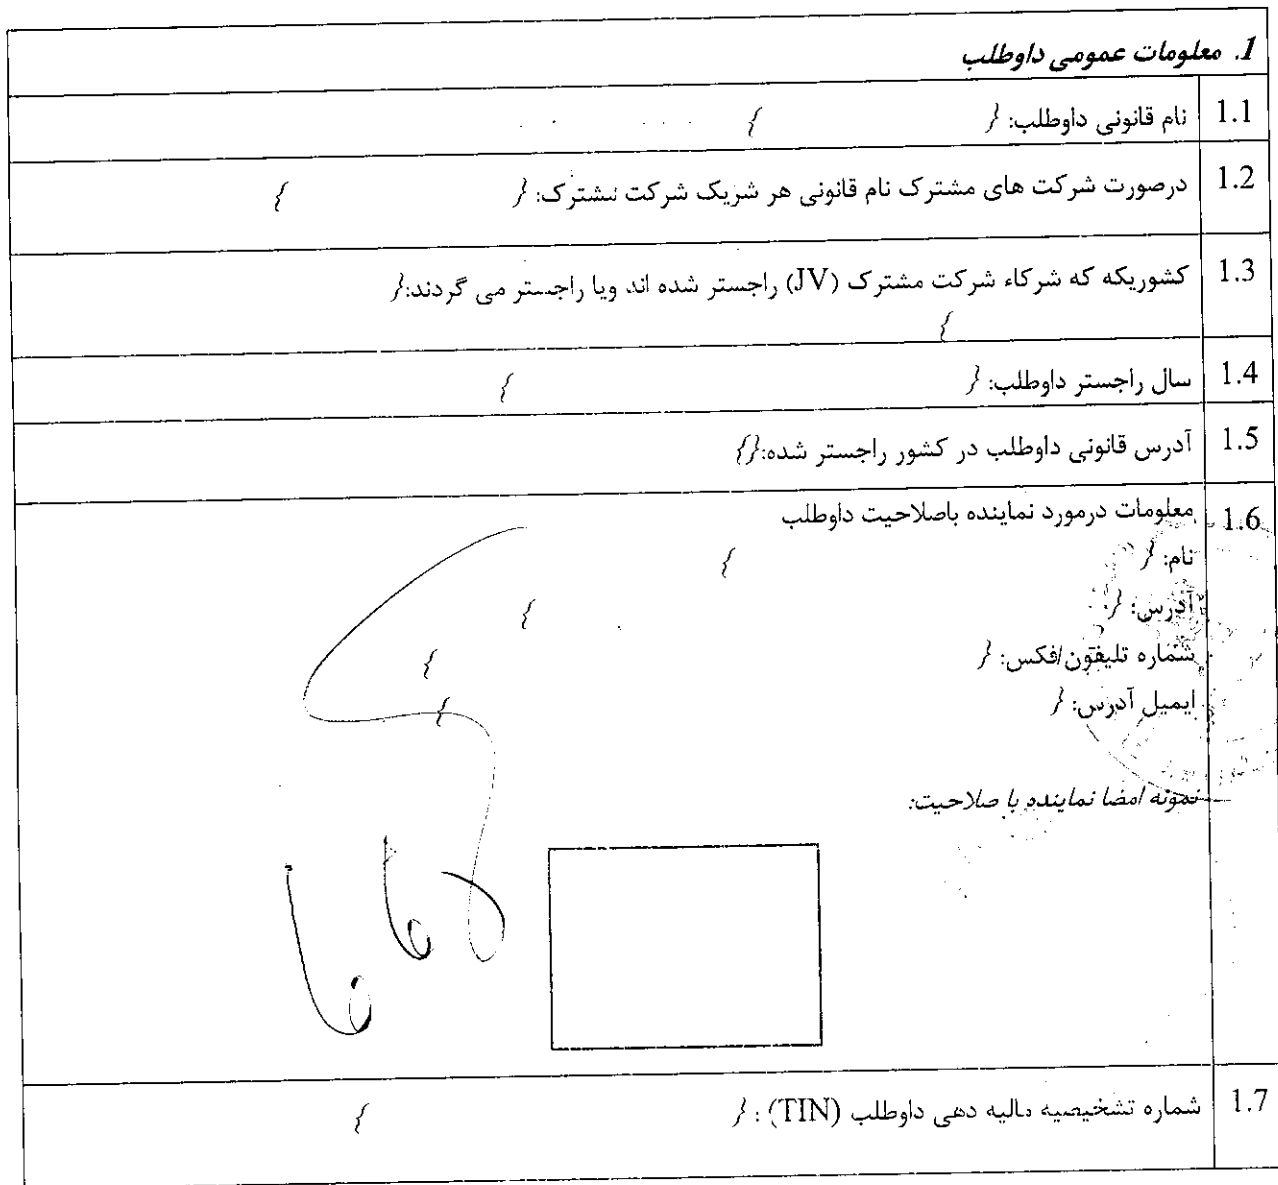 1. معلومات عمومی داوطلب
1.1 نام قانونی داوطلب: { }
1.2 درصورت شرکت های مشترک نام قانونی هر شریک شرکت مشترک: { }
1.3 کشوریکه که شرکاء شرکت مشترک (JV) راجستر شده اند ویا راجستر می گردند:{
}
1.4 سال راجستر داوطلب: { }
1.5 آدرس قانونی داوطلب در کشور راجستر شده:{}
1.6 معلومات درمورد نماینده باصلاحیت داوطلب
نام: { }
آدرس: { }
شماره تلیفون/فکس: { }
ایمیل آدرس: { }
نمونه امضا نماینده با صلاحیت:
1.7 شماره تشخیصیه مالیه دهی داوطلب (TIN) : { }